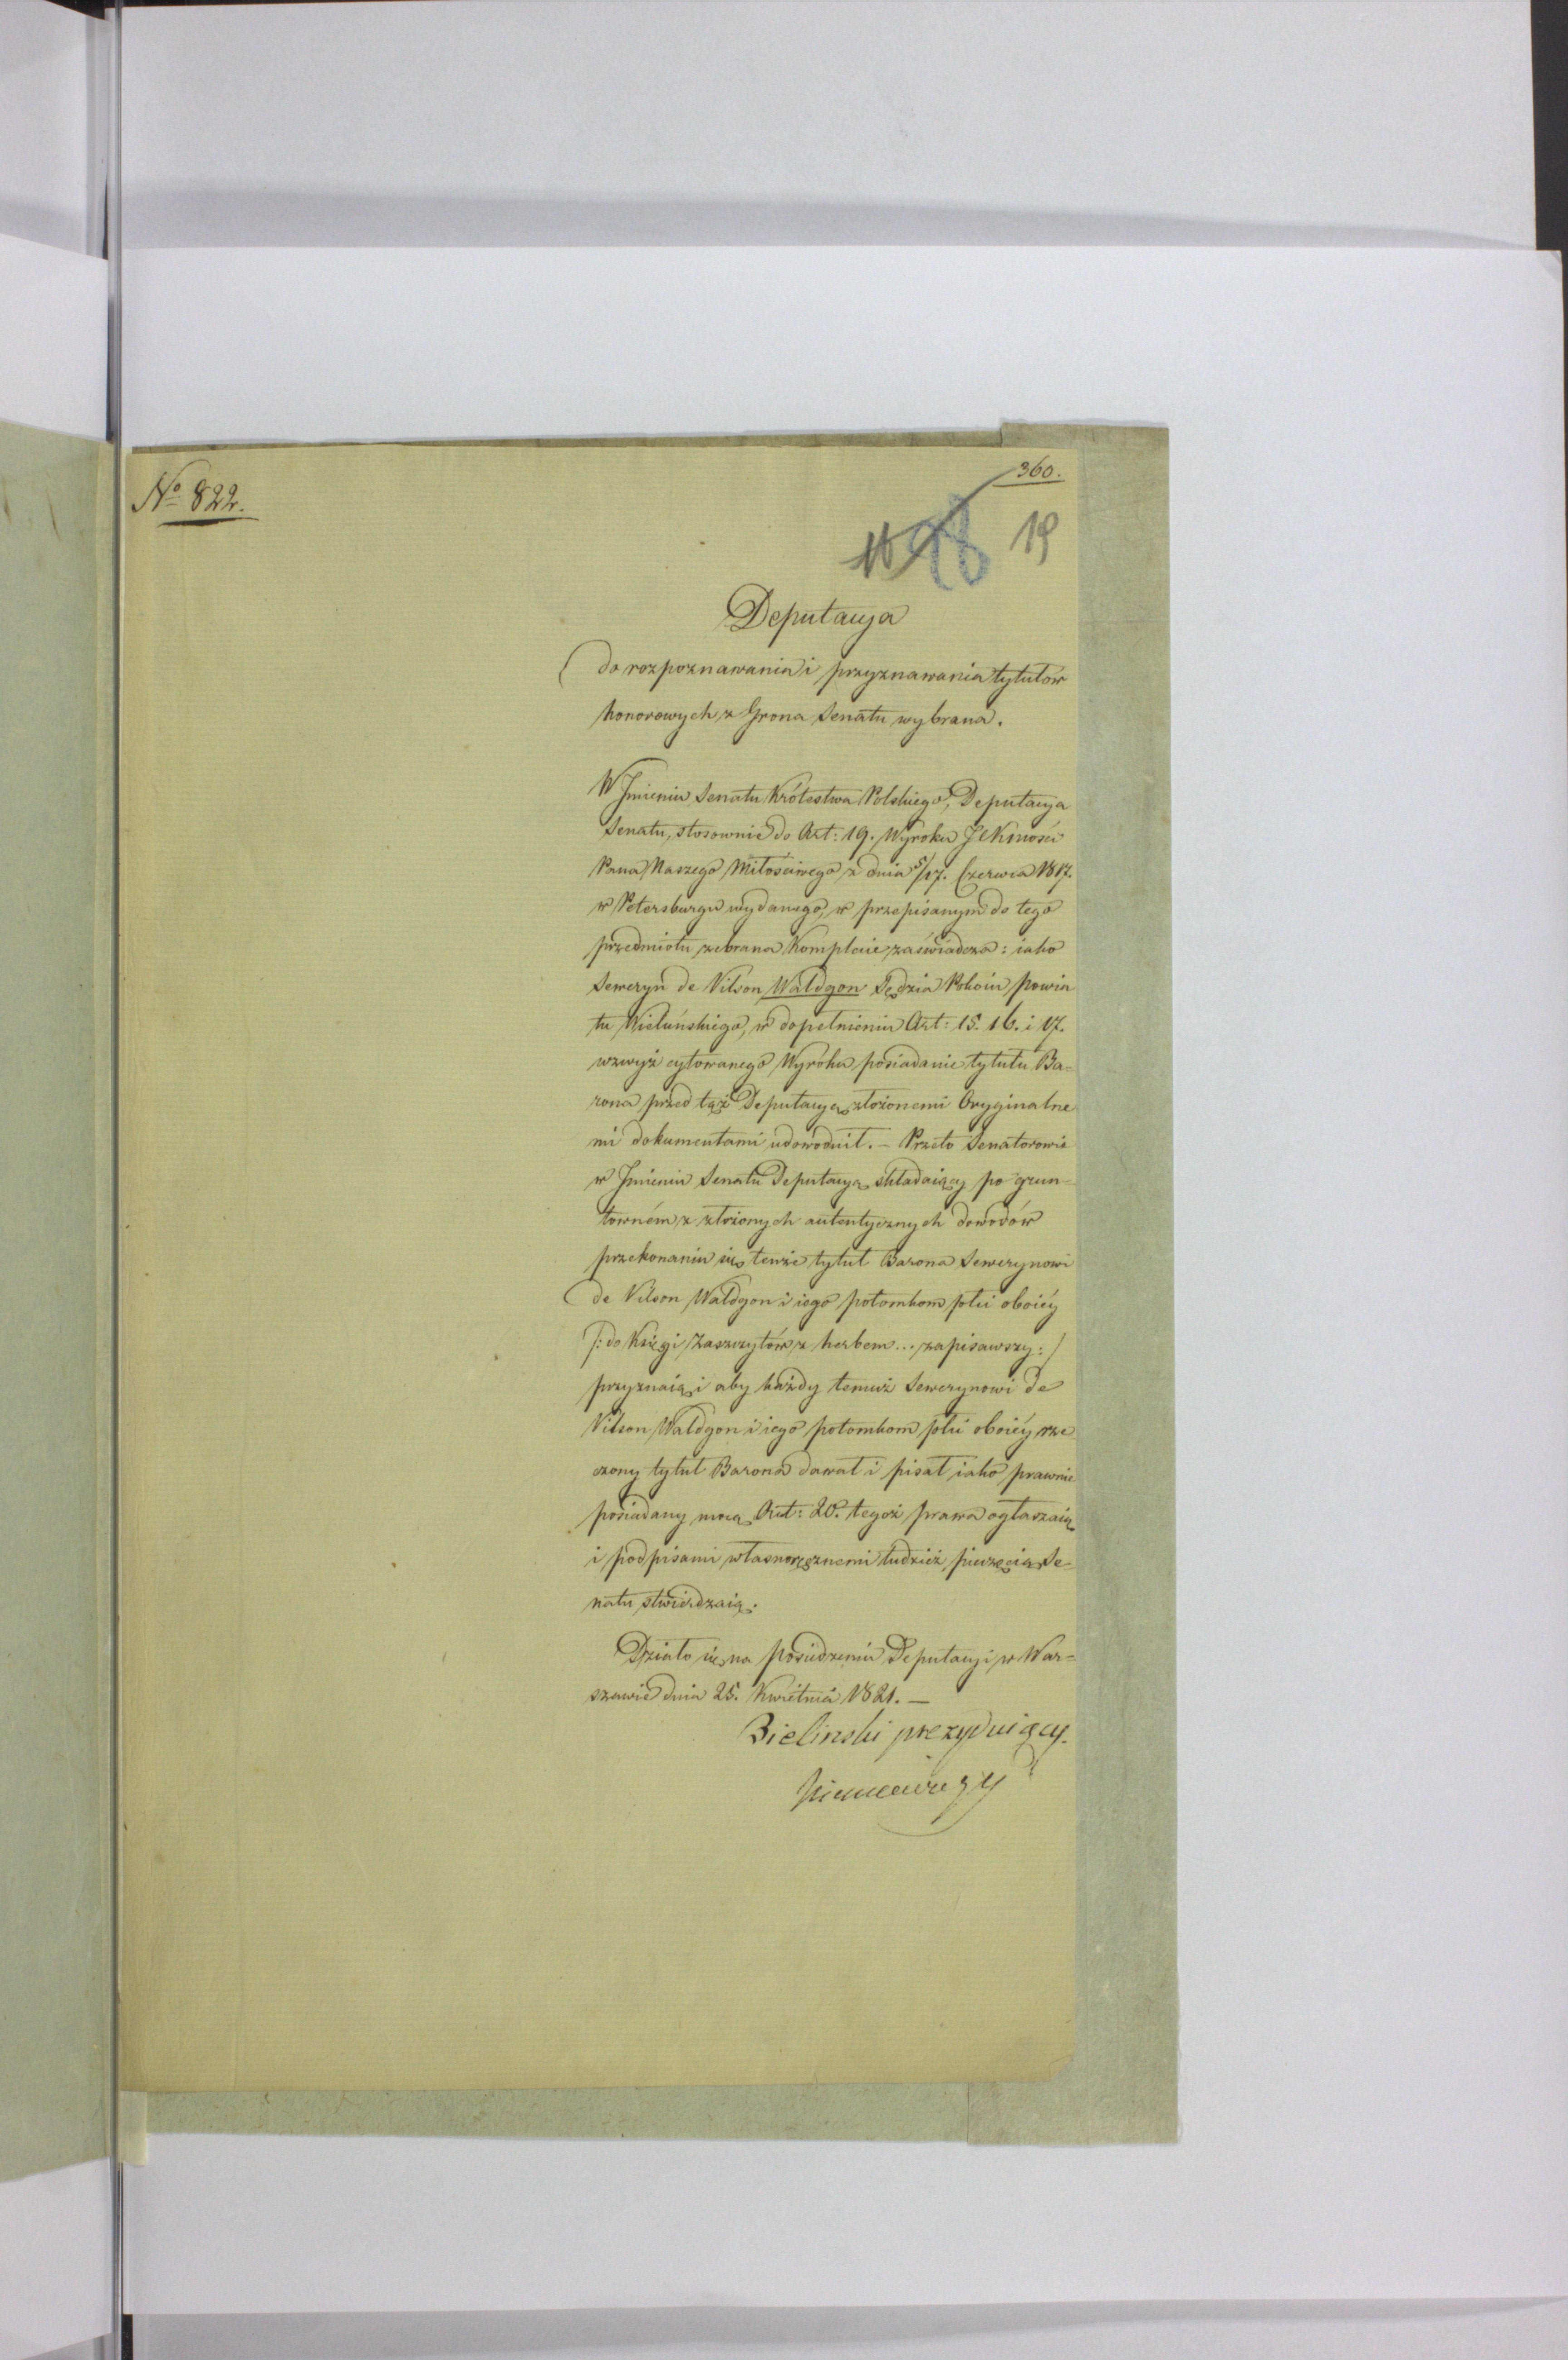 No 822.
360.
98 19
Deputacya
do rozpoznawania i przyznawania tytułów
honorowych z Grona Senatu wybrana.
W Jmieniu Senatu Królestwa Polskiego, Deputacya
Senatu, stosownie do Art: 19. Wyroku JCKmości
Pana Naszego Miłościwego z dnia 5/17. Czerwca 1817.
w Petersburgu wydanego, w przepisanym do tego
przedmiotu zebrana Komplecie zaświadcza: iako
Seweryn de Vilson Waldgon Sędzia Pokoiu powia
tu Wieluńskiego, w dopełnieniu Art: 15. 16. i 17.
wzwyż cytowanego Wyroku posiadanie tytułu Ba=
rona przed tąż Deputacyą złożonemi Oryginalne
mi dokumentami udowodnił. – Przeto Senatorowie
w Jmieniu Senatu Deputacyą składaiący po grun=
towném z złożonych autentycznych dowodów
przekonaniu się tenże tytuł Barona Sewerynowi
de Vilson Waldgon i iego potomkom płci oboiéy
/: do Księgi Zaszczytów z herbem... zapisawszy :/
przyznaią i aby każdy temuż Sewerynowi de
Vilson Waldgon i iego potomkom płci oboiéy rze
czony tytuł Barona dawał i pisał iako prawnie
posiadany mocą Art: 20. tegoż prawa ogłaszaią
i podpisami własnoręcznemi tudzież pieczęcią Se=
natu stwierdzaią.
Działo się na posiedzeniu Deputacyi w War=
szawie dnia 25. Kwietnia 1821. –
Bielinski prezyduiący.